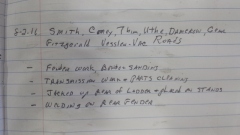 8-2-16 Smith, Corey, Thim, Uthe, Dameron, Gene
Fitzgerald Vession-Vac Roads
- Fender work, Body + Sanding
- Transmission work + Parts cleaning
- Jacked up Rear of + placed on stands
- Welding on Rear Fender